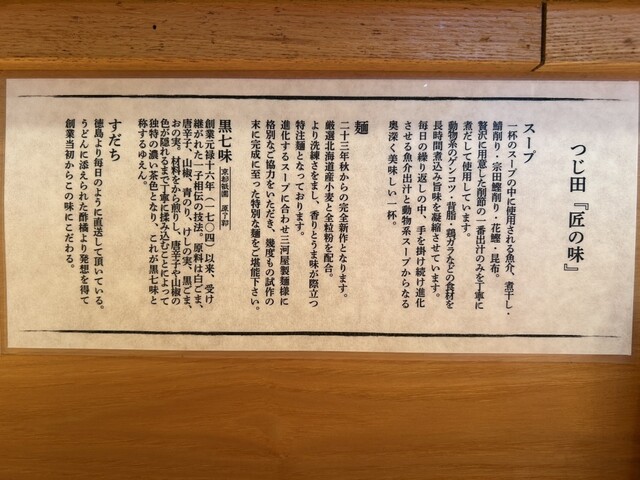 つじ田『匠の味』
スープ
一杯のスープの中に使用される魚介、煮干し・
鯖削り・宗田鰹削り・花鰹・昆布。
贅沢に用意した削節の一番出汁のみを丁寧に
煮だして使用しています。
動物系のゲンコツ・背脂・鶏ガラなどの食材を
長時間煮込み旨味を凝縮させています。
毎日の繰り返しの中、手を掛け続け進化
させる魚介出汁と動物系スープからなる
奥深く美味しい一杯。
麺
二十三年秋からの完全新作となります。
厳選北海道産小麦と全粒粉を配合。
より洗練さをまし、香りとうま味が際立つ
特注麺となっております。
進化するスープに合わせ三河屋製麺様に
格別なご協力をいただき、幾度もの試作の
末に完成に至った特別な麺をご堪能下さい。
黒七味 京都祇園 原了郭
創業元禄十六年(一七〇四)以来、受け
継がれた一子相伝の技法。原料は白ごま、
唐辛子、山椒、青のり、けしの実、黒ごま、
おの実。材料をから煎りし、唐辛子や山椒の
色が隠れるまで丁寧に揉み込むことによって
独特の濃い茶色となり、これが黒七味と
称するゆえん。
すだち
徳島より毎日のように直送して頂いている。
うどんに添えられた酢橘より発想を得て
創業当初からこの味にこだわる。